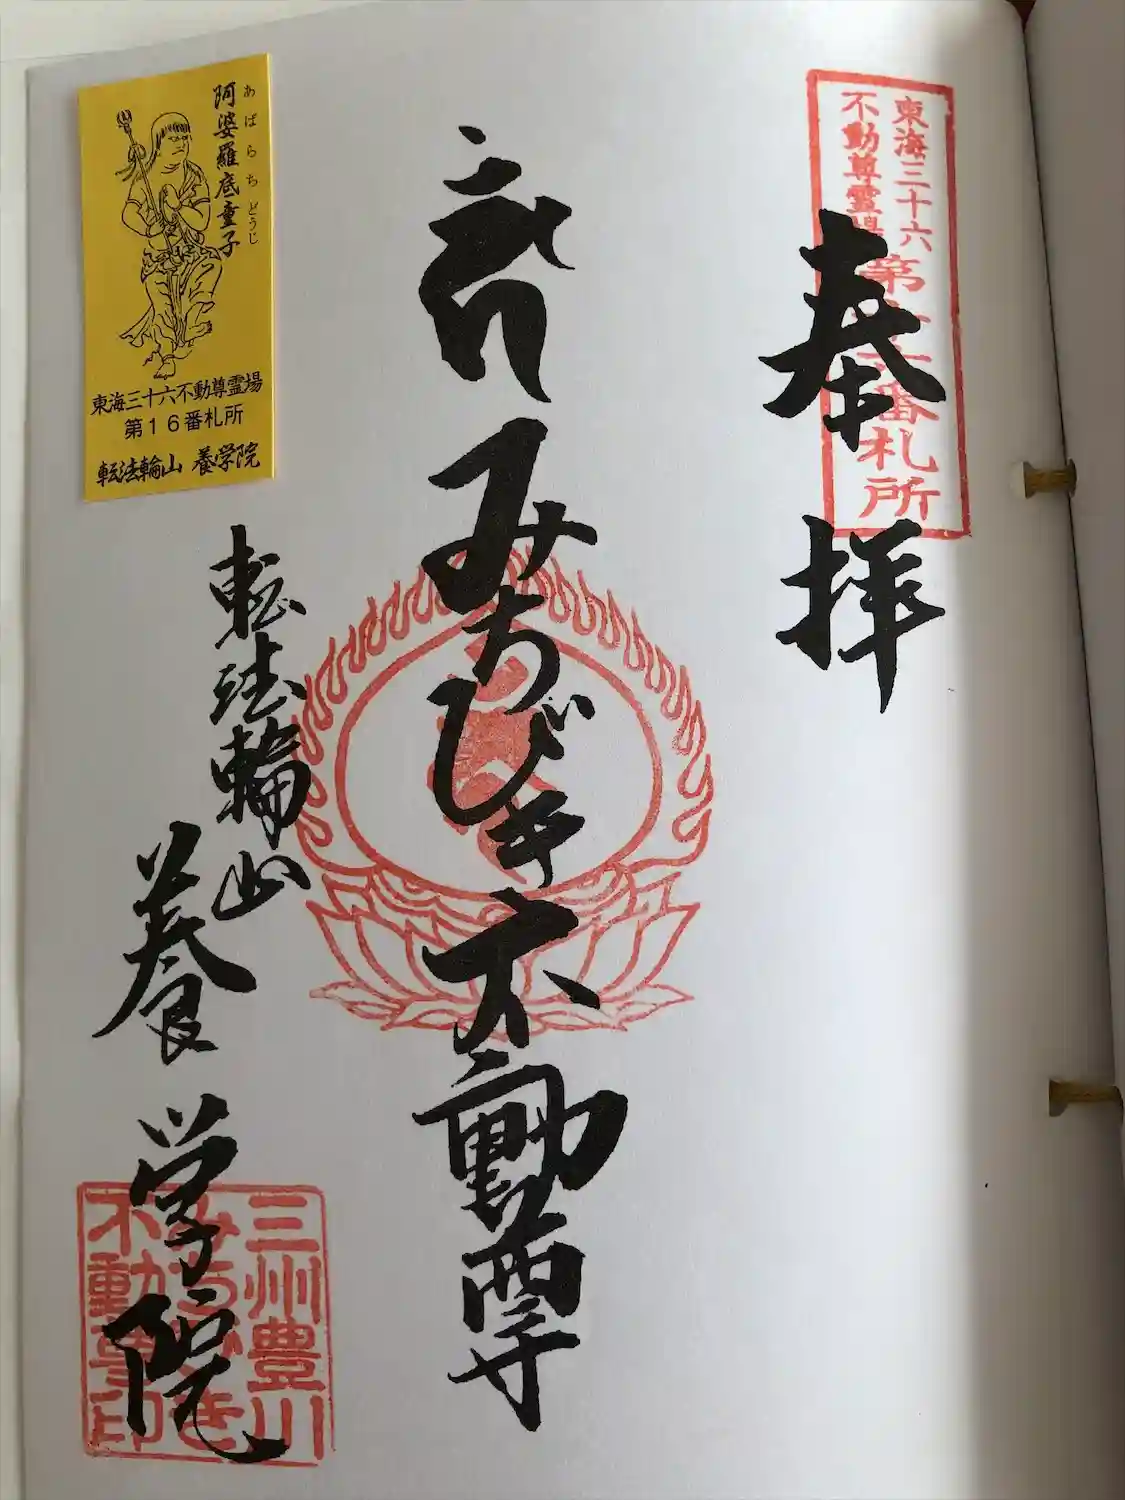 東海三十六
不動尊霊場
第十六番札所
奉拝
みちびき不動尊
転法輪山
養学院
三州豊川
みちびき
不動尊印
阿婆羅底童子
あばらちどうじ
東海三十六不動尊霊場
第16番札所
転法輪山 養学院